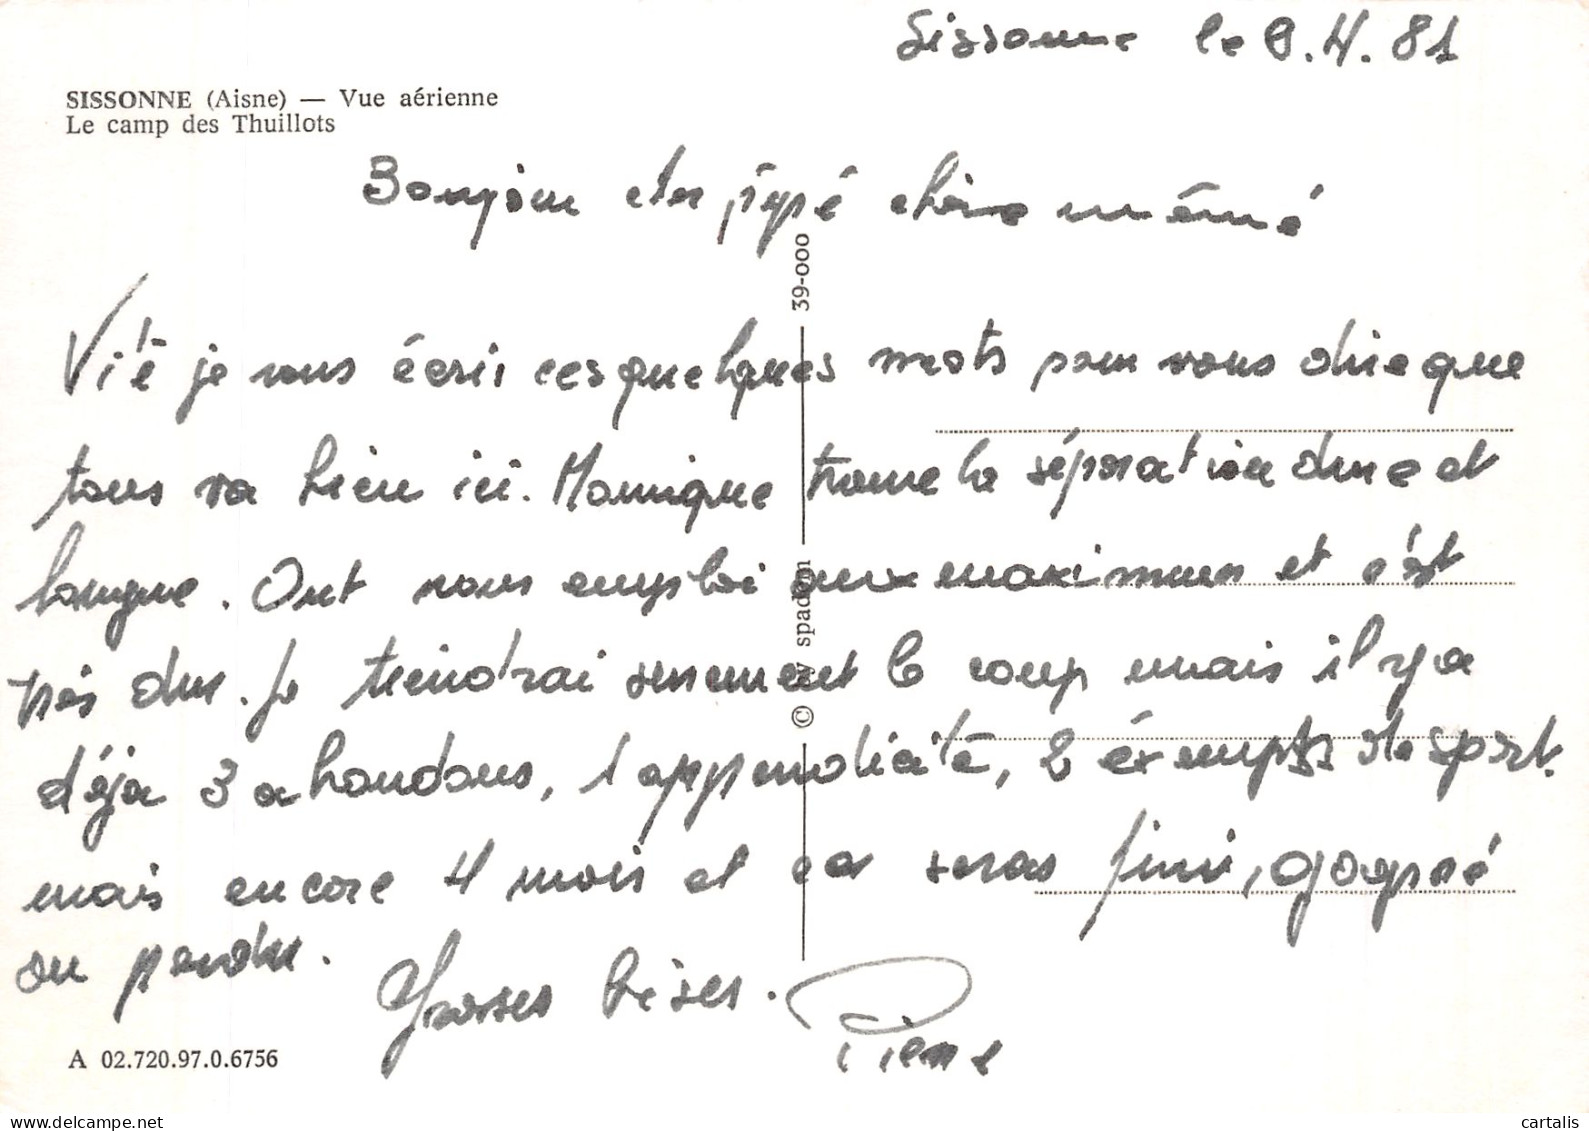 Sissonne le 8.4.81
SISSONNE (Aisne) — Vue aérienne
Le camp des Thuillots
Bonjour cher pépé chère mémé
39-000
Vite je vous écris ces quelques mots pour vous dire que
tous va bien ici. Monique trouve la séparation dure et
longue. Ont nous emploi aux maximum et c'est
très dur. Je tiendrai surement le coup mais il y a
déjà 3 abandons, 1 appendicité, 2 éxempts de sport.
mais encore 4 mois et ça seras fini, gagné
ou perdu.
Grosses bises.
Pierre
© by spadem
A 02.720.97.0.6756
delcampe.net
cartalis